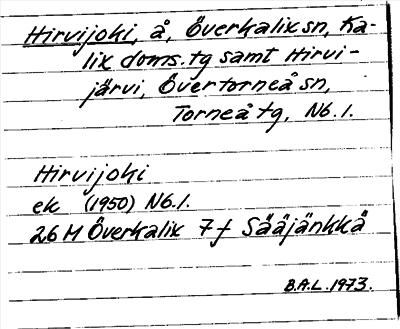 Hirvijoki, å, Överkalix sn, Ka-
lix doms. tg samt Hirvi-
järvi, Övertorneå sn,
Torneå tg, Nb. l.
Hirvijoki
ek (1950) Nb. l.
26 M Överkalix 7 f Sääjänkkä
B.A.L. 1973.